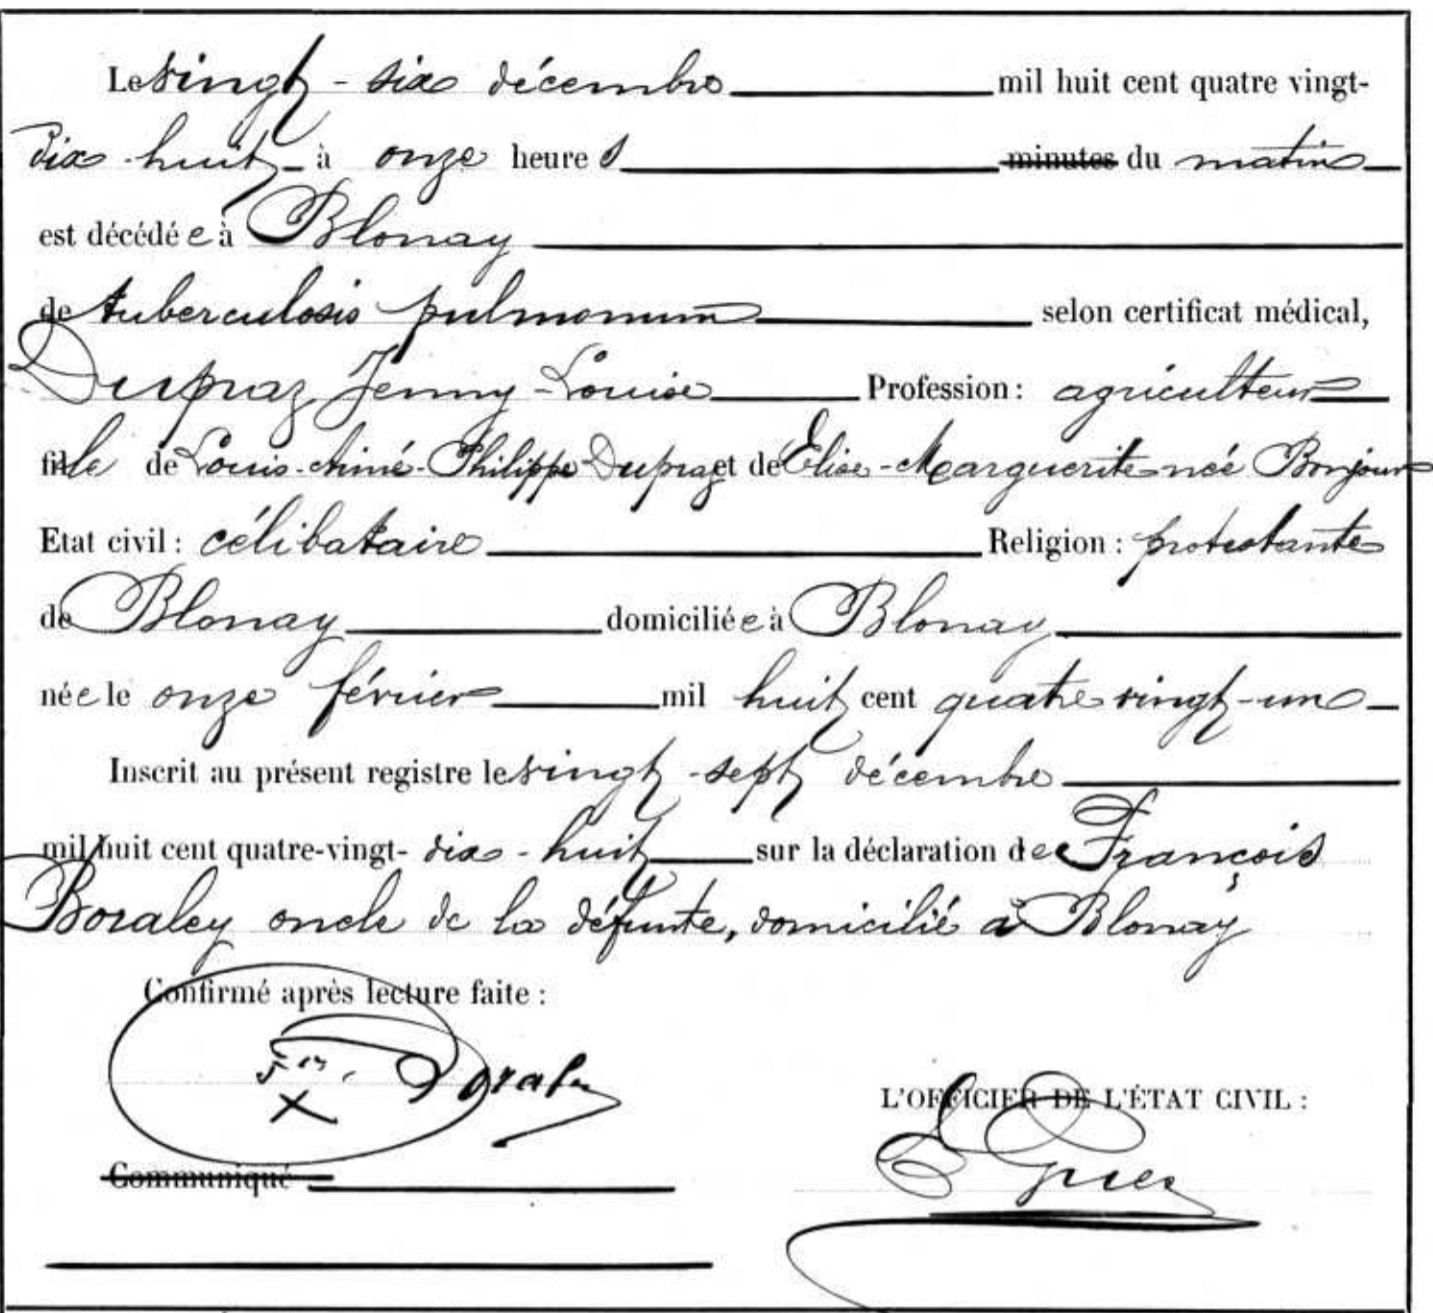 Le vingt-six décembre mil huit cent quatre vingt-
dix-huit à onze heures minutes du matin
est décédée à Blonay
de tuberculosis pulmonum selon certificat médical,
Dupraz Jenny-Louise Profession: agriculteur
fille de Louis-Aimé-Philippe Dupraz et de Elise-Marguerite née Bonjour
Etat civil: célibataire Religion: protestante
de Blonay domiciliée à Blonay
née le onze février mil huit cent quatre vingt-un
Inscrit au présent registre le vingt-sept décembre
mil huit cent quatre-vingt-dix-huit sur la déclaration de François
Boraley oncle de la défunte, domicilié à Blonay
Confirmé après lecture faite:
L'OFFICIER DE L'ÉTAT CIVIL:
Communiqué